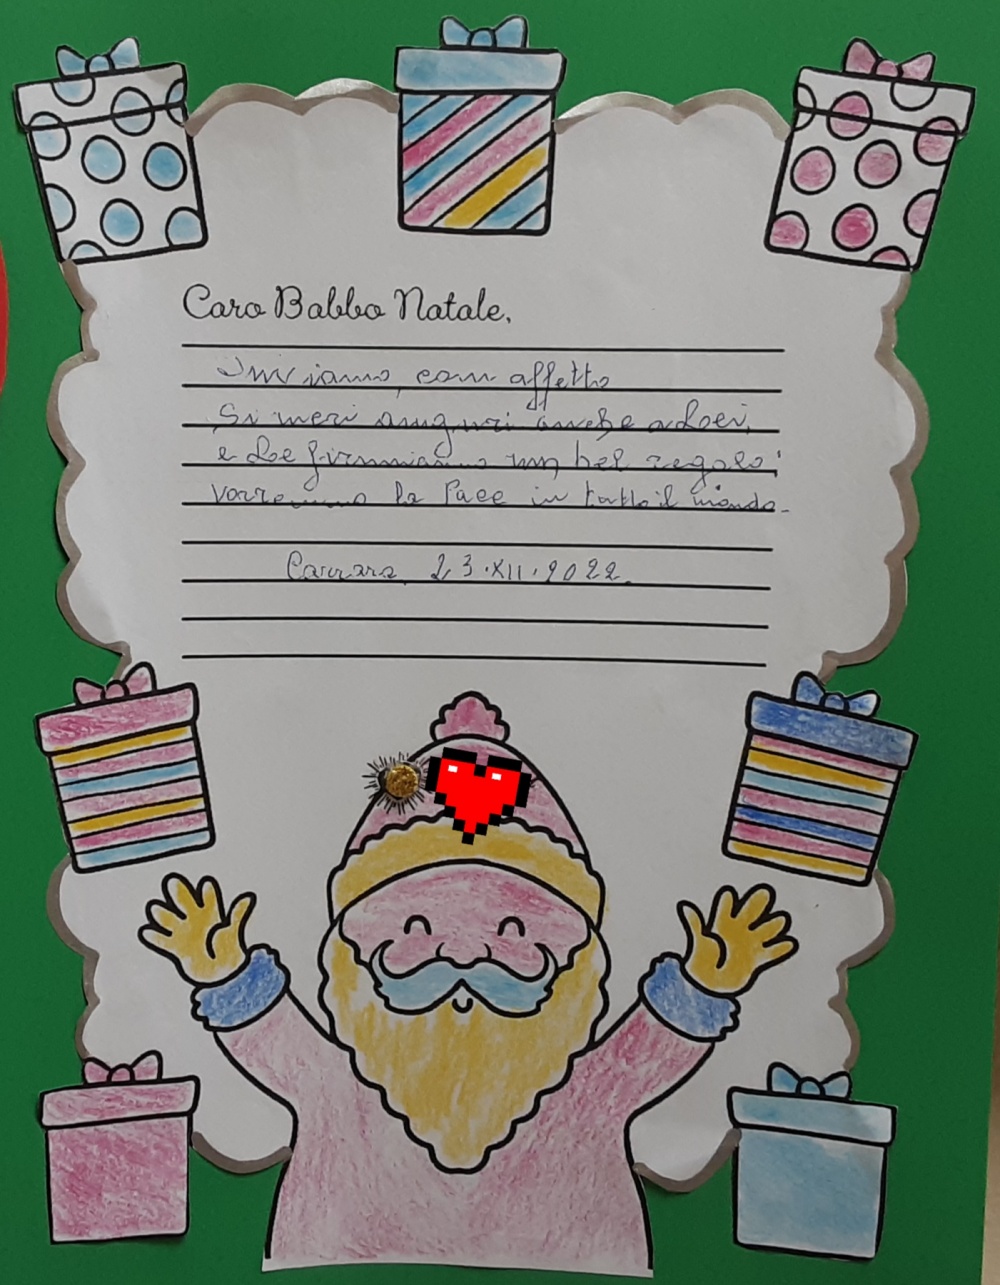 Caro Babbo Natale,
Inviamo con affetto
Sinceri auguri anche a Lei,
e Le firmiamo un bel regalo:
vorremmo la Pace in tutto il mondo.
Carrara 23.XII.2022.